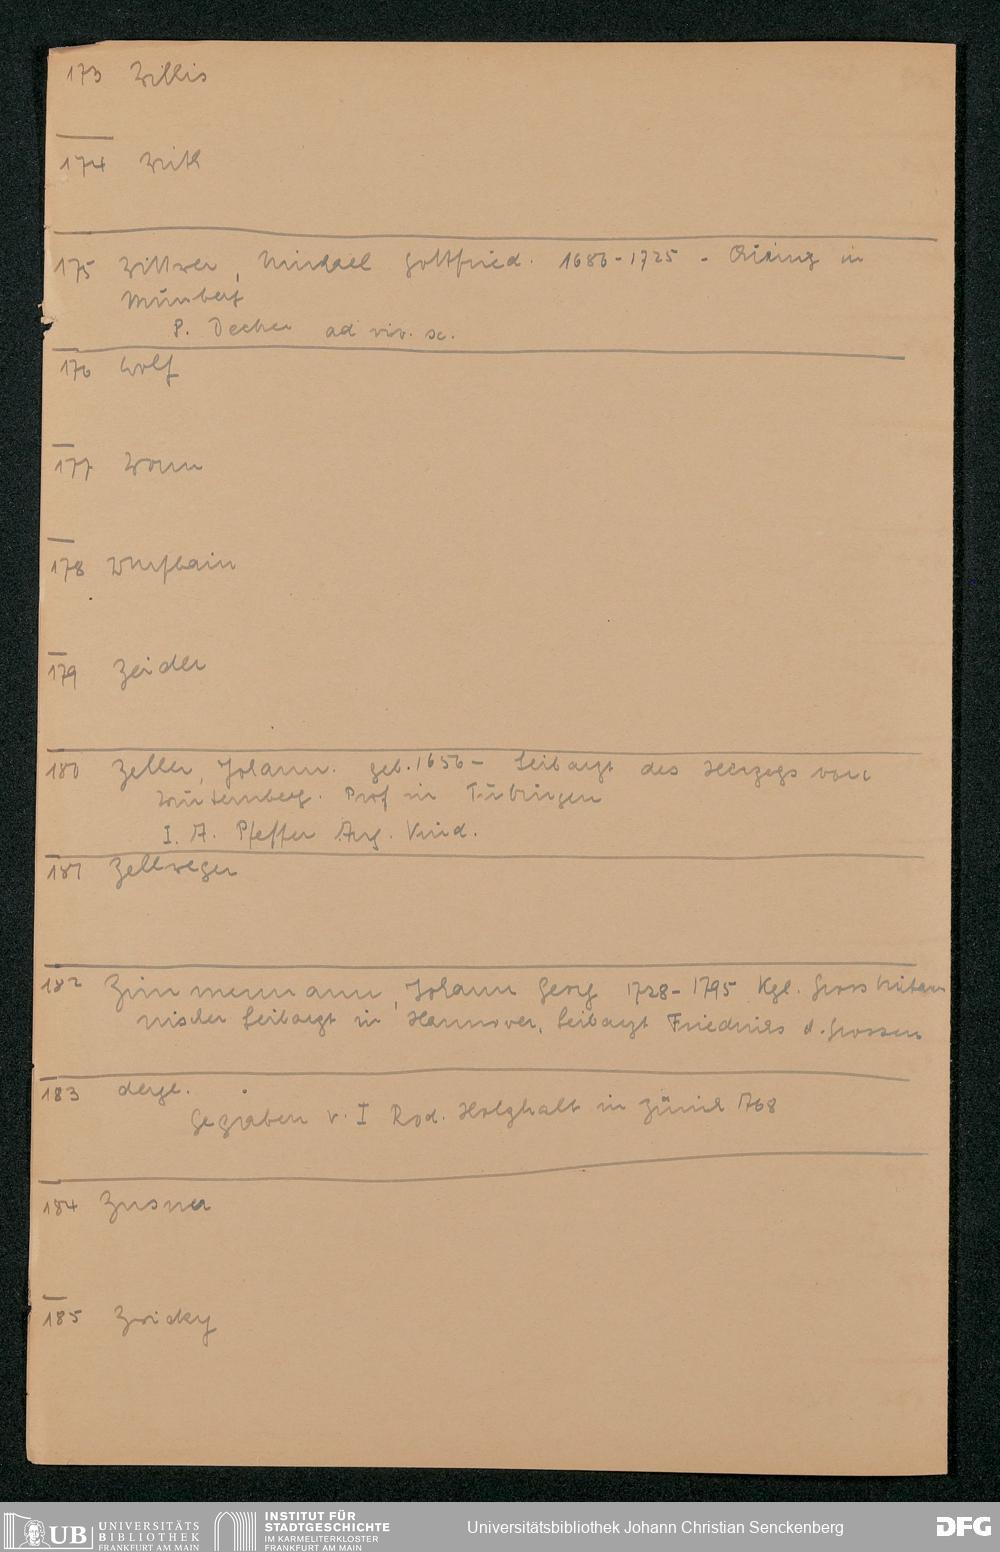 173 Willis
174 With
175 Wittwer, Michael Gottfried. 1686-1725 - Chirurg in
Nürnberg
P. Decker ad viv. sc.
176 Wolf
177 Worm
178 Wurfbain
179 Zeidler
180 Zeller, Johann. geb. 1656- Leibarzt des Herzogs von
Würtemberg. Prof in Tübingen
I. A. Pfeffer Aug. Vind.
181 Zellweger
182 Zimmermann, Johann Georg 1728-1795 Kgl. Gross britan
nischer Leibarzt in Hannover, Leibarzt Friedrichs d. Grossen
183 dergl.
Gegraben v. I Rod. Holzhalb in Zürich 1768
184 Zusner
185 Zwicky
UB UNIVERSITÄTS
BIBLIOTHEK
FRANKFURT AM MAIN
INSTITUT FÜR
STADTGESCHICHTE
IM KARMELITERKLOSTER
FRANKFURT AM MAIN
Universitätsbibliothek Johann Christian Senckenberg
DFG